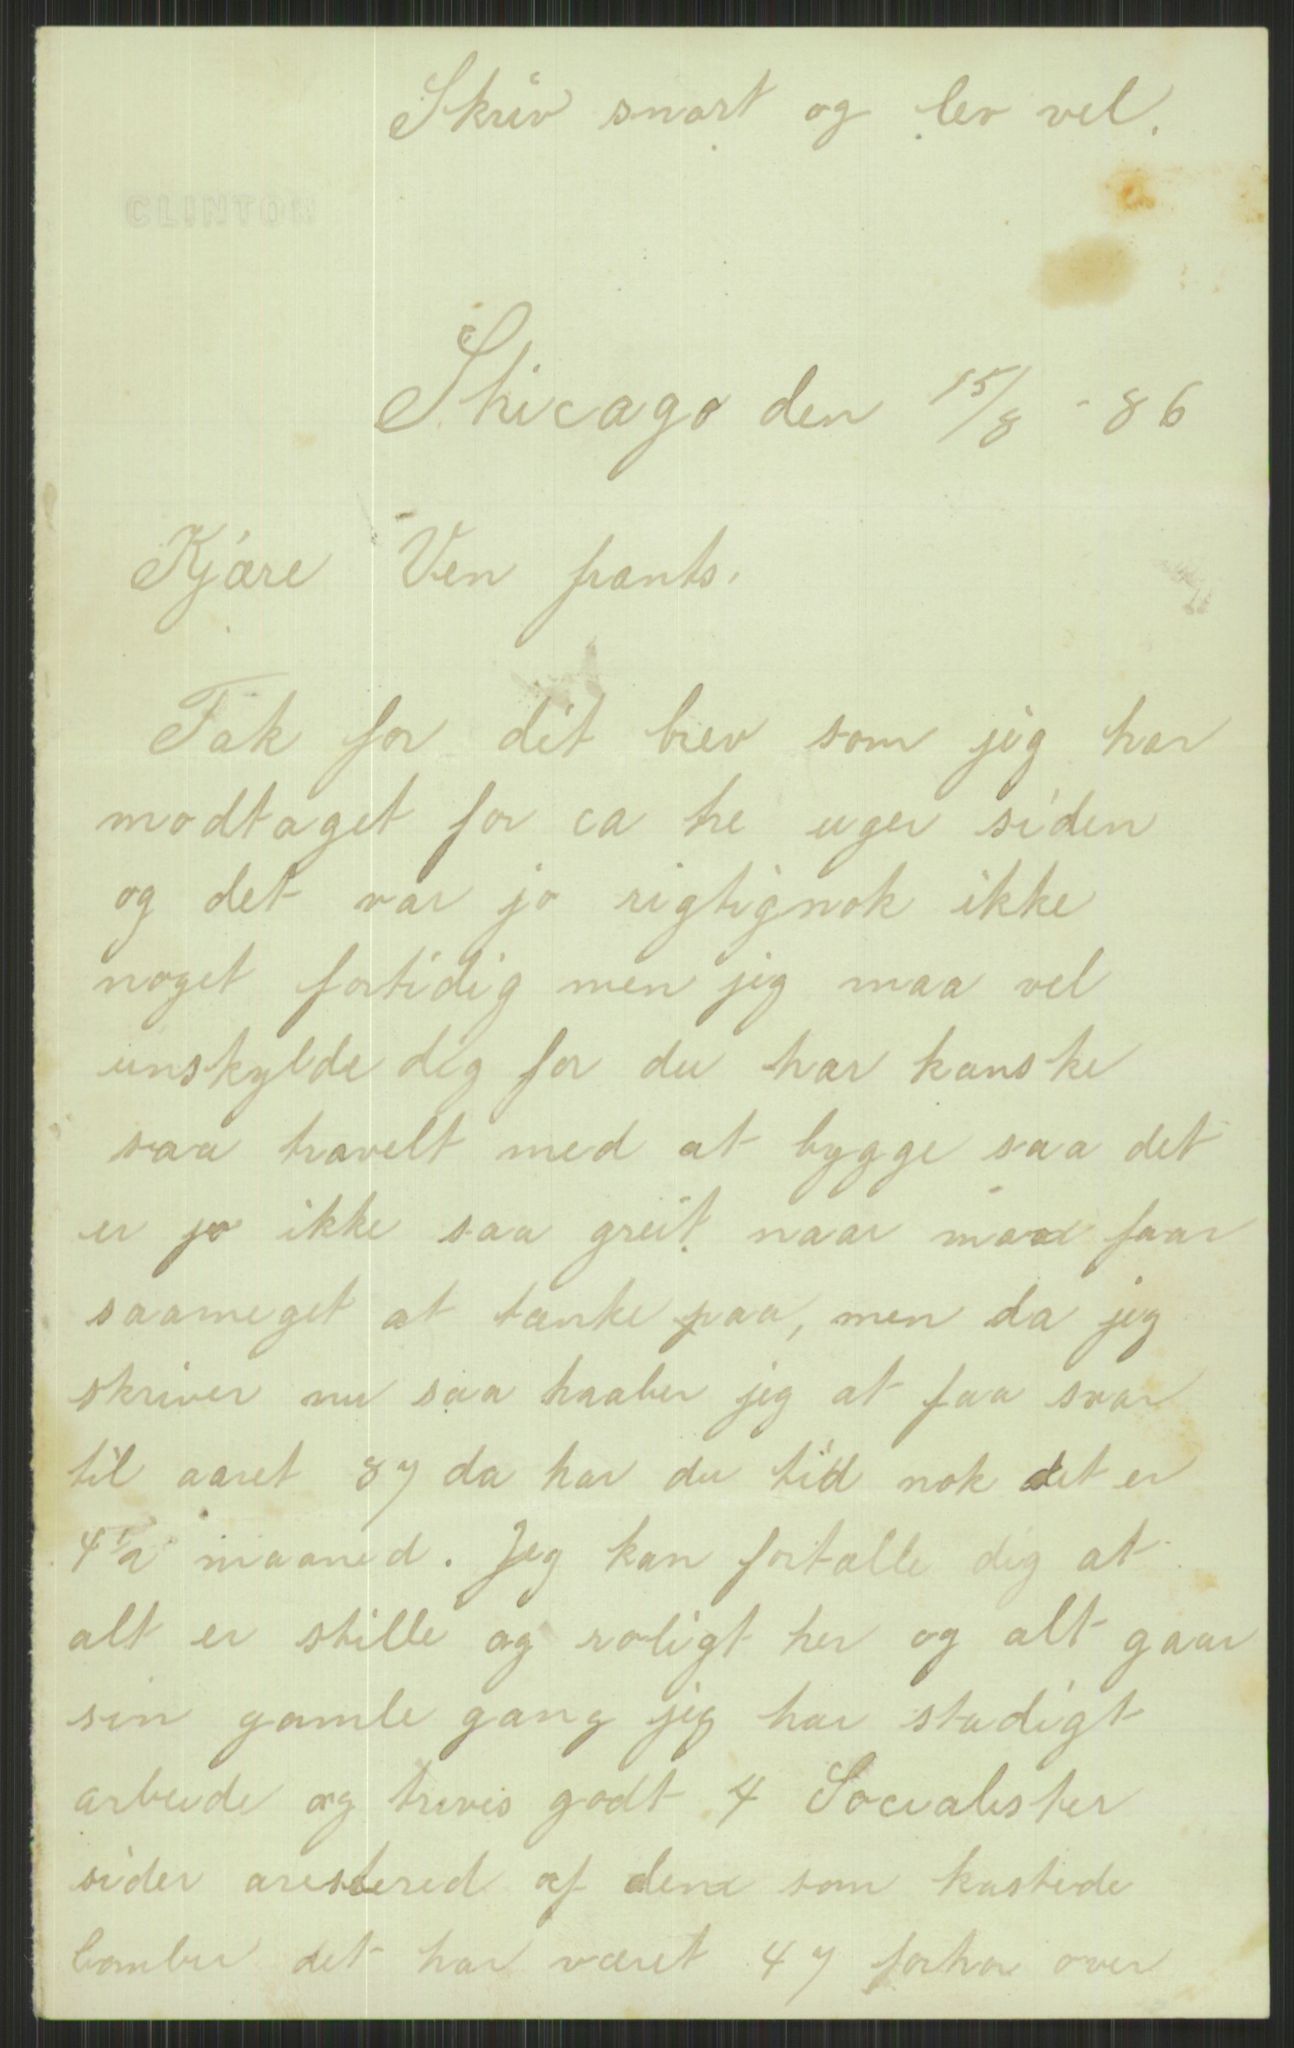 Skriv snart og lev vel.
CLINTON
Shicago den 15/8 - 86
Kjære Ven frants.
Tak for dit brev som jig har
modtaget for ca tre uger siden
og det var jo rigtignok ikke
noget fortidig men jig maa vel
unskylde dig for du har kanske
saa travelt med at bygge saa det
er jo ikke saa greit naar man faar
saameget at tænke paa, men da jig
skriver nu saa haaber jig at faa svar
til aaret 87 da har du tid nok det er
4 1/2 maaned. Jeg kan fortælle dig at
alt er stille og roligt her og alt gaar
sin gamle gang jig har stadigt
arbeide og trives godt 4 Socialister
sider arestered af dem som kastede
bomber det har været 47 forhør over